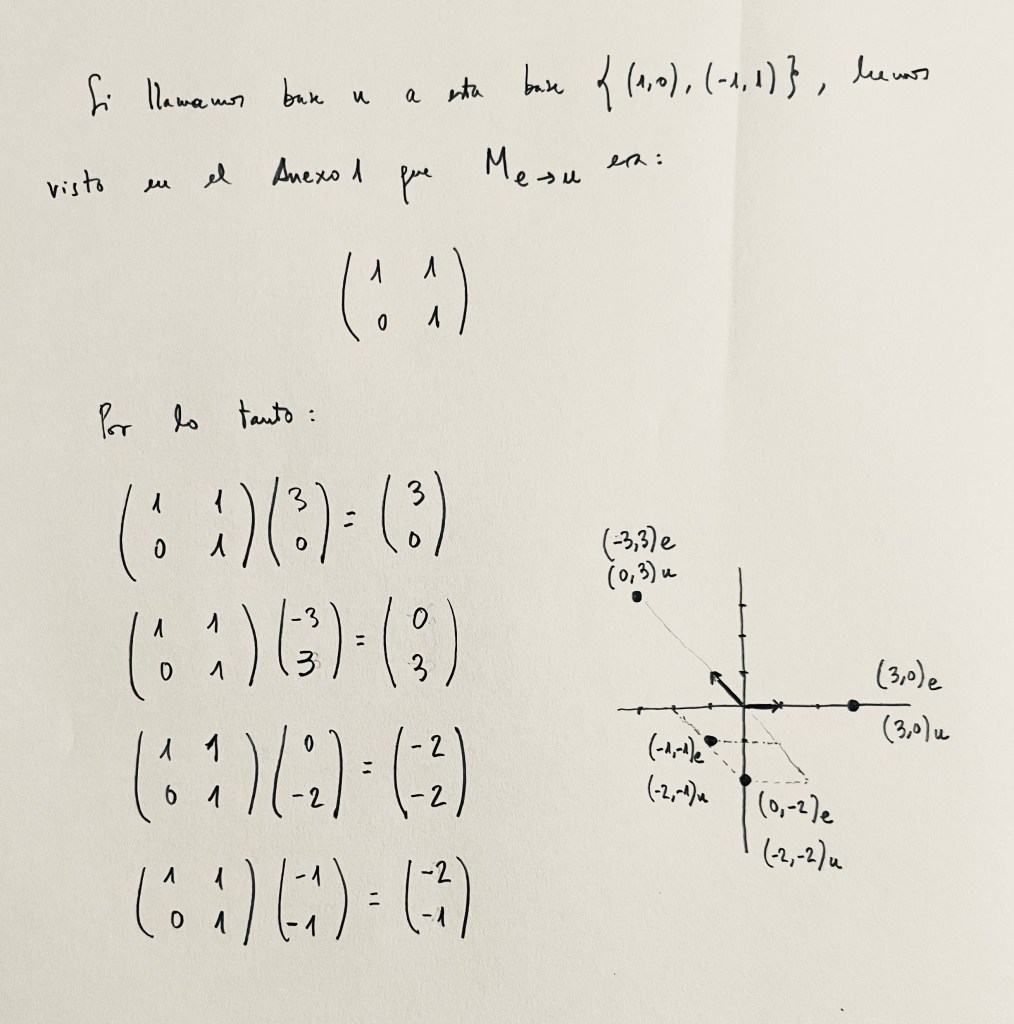 Si llamamos base u a esta base { (1,0), (-1,1) }, hemos
visto en el Anexo 1 que M e→u era:
( 1 1 )
( 0 1 )
Por lo tanto:
( 1 1 ) ( 3 ) = ( 3 )
( 0 1 ) ( 0 ) ( 0 )
( 1 1 ) ( -3 ) = ( 0 )
( 0 1 ) ( 3 ) ( 3 )
( 1 1 ) ( 0 ) = ( -2 )
( 0 1 ) ( -2 ) ( -2 )
( 1 1 ) ( -1 ) = ( -2 )
( 0 1 ) ( -1 ) ( -1 )
(-3,3)e
(0,3)u
(3,0)e
(3,0)u
(-1,-1)e
(-2,-1)u
(0,-2)e
(-2,-2)u